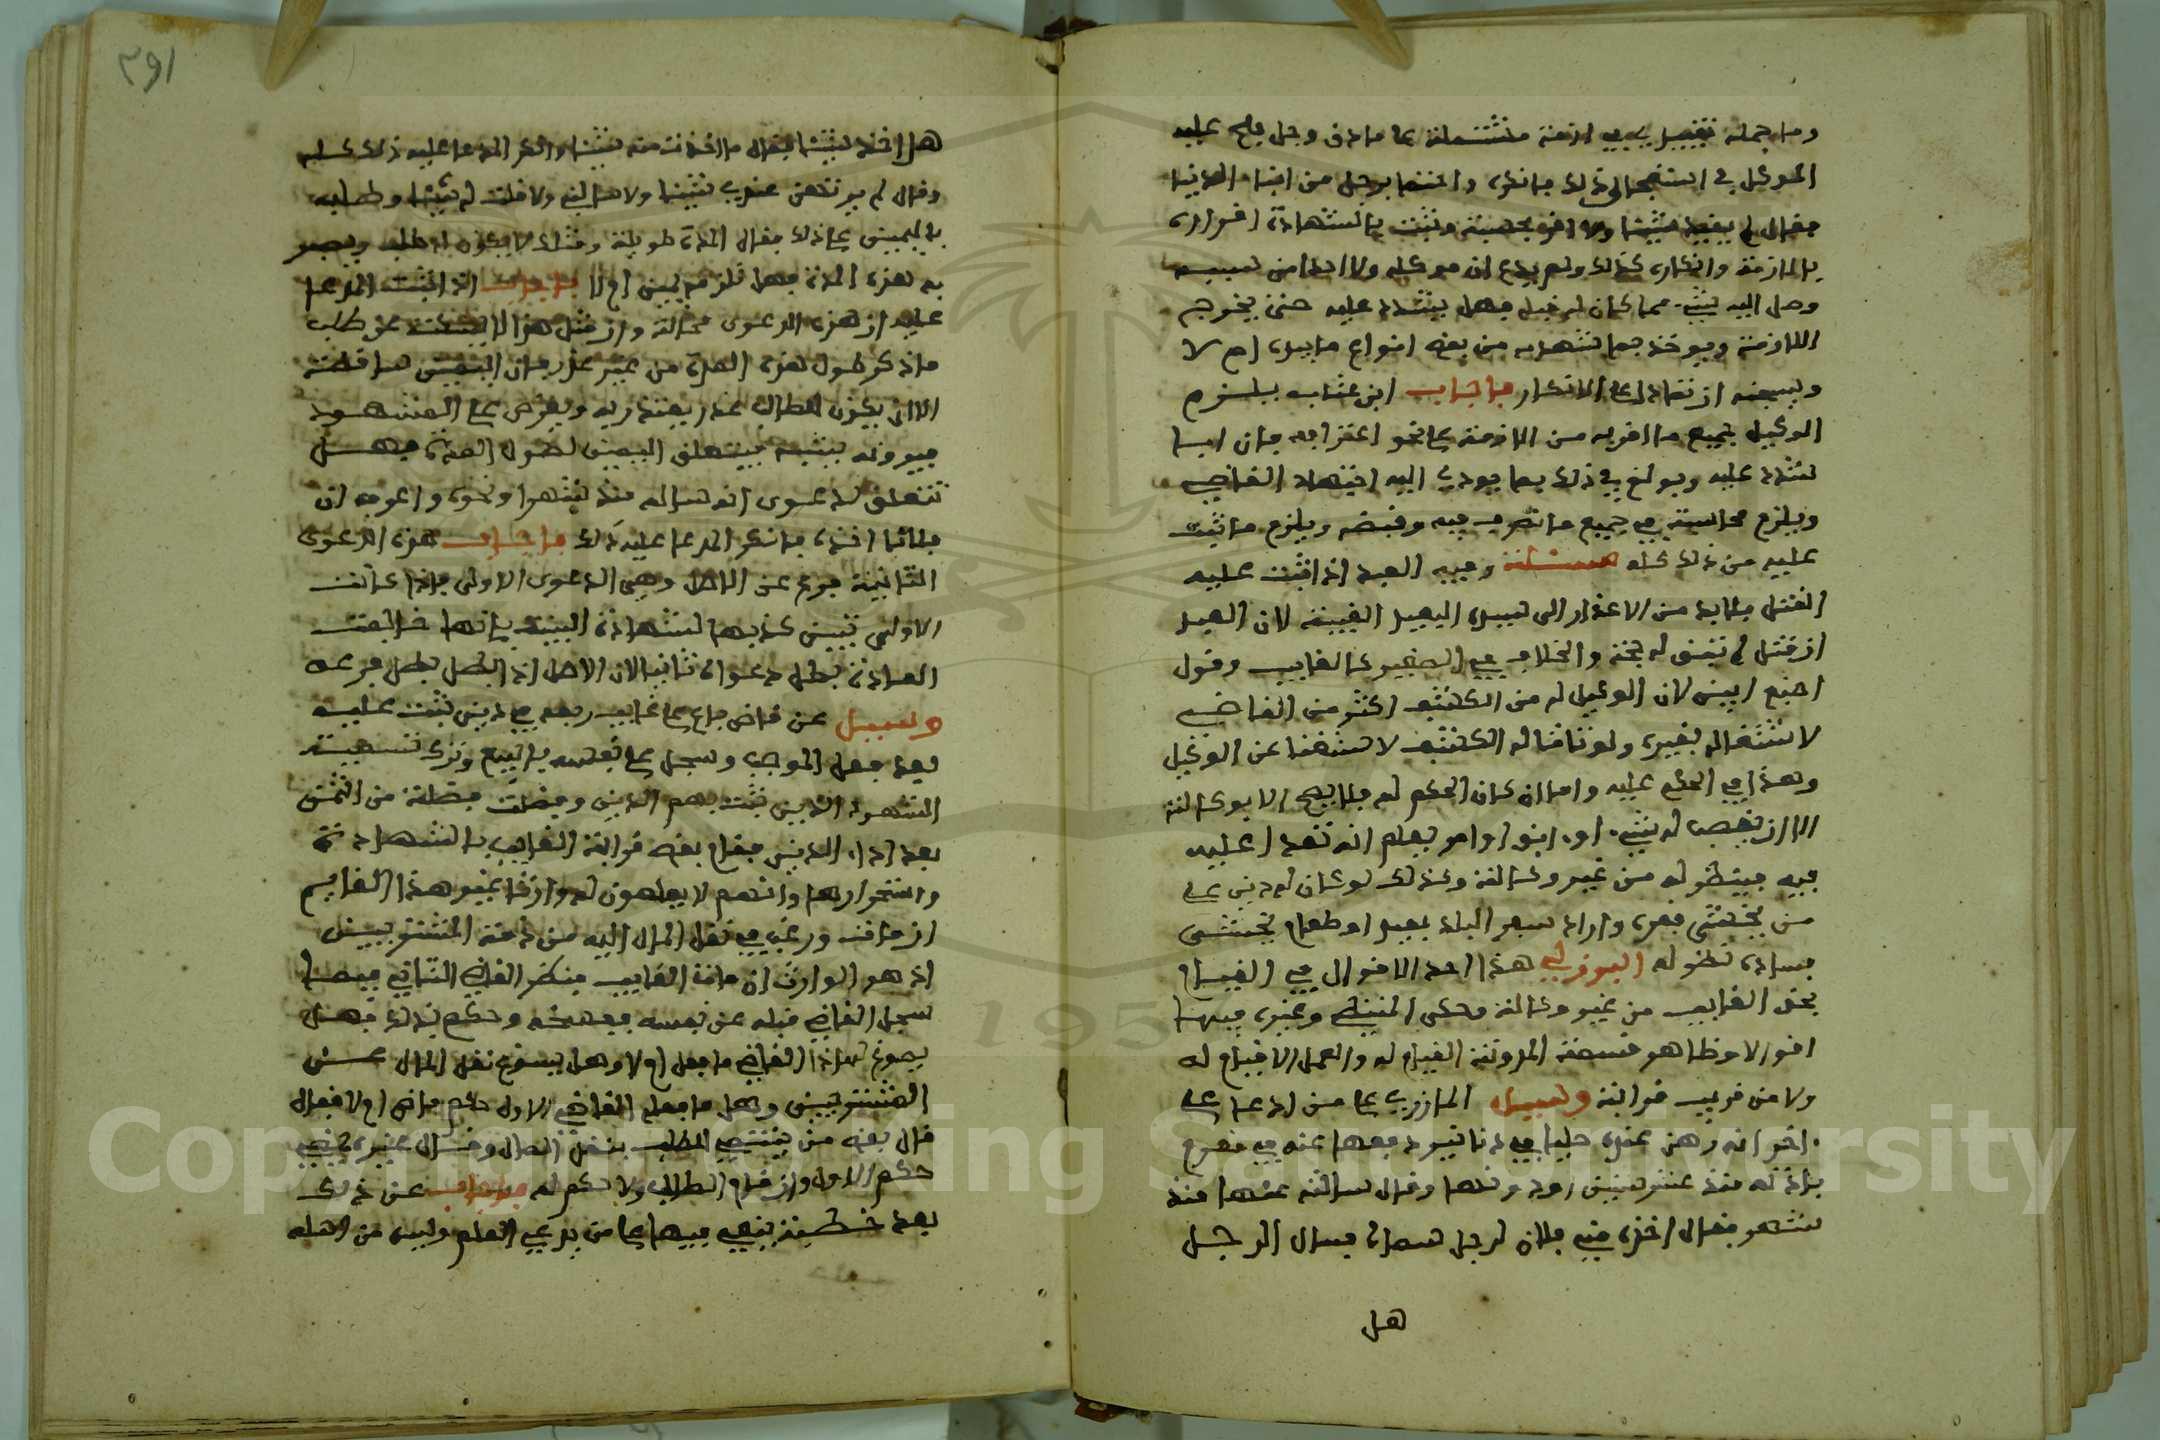 وما جملة تفصيل في ازمنة مشتملة على ما دق وجل يلح عليه
الموكل في ذلك فانكره وانتما برجل من ابناء الدنيا
فقال لم يفيد شيئا ولا اقر بحبسة وثبت بالشهادة اقراره
بالمازمة وانكاره كذلك ولم يدع ان موكله ولا احدا من سببه
وصل اليه شيء مما كان له قبله فهل يشدد عليه حتى يخرج
اللازمة ويوخذ بما شهد به من بعض انواع ما بيده ام لا
ويسجنه ان تمادى على الانكار فاجاب ابن عتاب يلزم
الوكيل جميع ما اقر به من اللازمة على نحو اعترافه فان ابا
شدد عليه وبولغ في ذلك بما يودي اليه اجتهاد القاضي
ويلزم محاسبته في جميع ما تصرف فيه وقبضه ويلزم ما ثبت
عليه من ذلك كله مسئلة وفيه العبد اذا ثبت عليه
القتل فلا بد من الاعذار الى سيده البعيد الغيبة لان العبد
ان قتل لم تبق له حجة والخلاف في الصغير كالغايب وقول
اصبغ ابين لان الوكيل له من الكشف اكثر من القاضي
لاشتغاله بغيره ولو تاتا له الكشف لاستغنا عن الوكيل
وهذا في الحكم عليه واما ان كان الحكم له فلا يصح الا بوكالة
الا ان يغصب له شيء او ابنه او امر يعلم انه تعدا عليه
فيه فينظر له من غير وكالة وكذلك لو كان له دين على
من يخشى فقره واراد سفر البلد بعيد او طعام يخشى
فساده نظر له البرزلي هذا احد الاقوال في القيام
بحق الغايب من غير وكالة وحكى المتيطي وغيره فيها
اقوالا وظاهر قسمة المدونة القيام له والعمل لا قيام له
ولا من قريب قرابة وسيل المازري عا من ادعا على
اخر انه رهن عنده حليا في دنانير دفعها عنه في مغرم
باذنه منذ عشر سنين وانه وقال سالته عنها منذ
شهر فقال اخذه مني فلان لرجل سماه فسال الرجل
هل
٣٩١
هل اخذ شيئا فقال ما اخذت منه شيئا وانكر المدعا عليه ذلك كله
وقال لم يرتهن عندي شيئا ولا سالني ولا قلت له شيئا وطلبه
باليمين على ذلك فقال المدة طويلة ومثلك لا يكون له طلب ويصبر
به هذه المدة فهل تلزم يمين ام لا فاجاب اذا اثبت المدعا
عليه ان هذه الدعوى محالة وان مثل هذا لا يسكت عن طلب
ما ذكر طول هذه المدة من غير عذر فان اليمين ساقطة
الا ان يكون للطالب عذر يعتذر به ويعرض على الشهود
فيرونه بشبه فيتعلق اليمين لطول المدة فهل
تتعلق له دعوى انه ساله منذ شهر ونحوه واعرف ان
فلانا اخذه فانكر المدعا عليه ذلك فاجاب هذه الدعوى
الثانية فرع عن الاصل وهي الدعوى الاولى فاذا كانت
الاولى تبين كذبها لشهادة البينة بانها خالفت
العادة بطل دعواه ثانيا لان الاصل اذا بطل بطل فرعه
وسيل عن قاض باع على غايب ربعه في دين ثبت عليه
بعد فعل الموجب وسجل على نفسه بالبيع وترك تسمية
الشهود الذين ثبت بهم الدين وفضلت فضلة من الثمن
بعد اداء الدين فقام بعض قرابة الغايب بالشهادة
واستمرارها وانهم لا يعلمون له وارثا غير هذا القايم
ان مات ورغب في نقل المال اليه من ذمة المشتريين
اذ هو الوارث ان مات الغايب فنظر القاضي الثاني فيما
سجل القاضي قبله عن نفسه فصححه وحكم بذلك فهل
يسوغ لهذا القاضي ما فعل ام لا وهل يسوغ نقل المال عن
المشتريين وهل ما فعله القاضي الاول حكم ماض ام لا فقال
قال بعض من ينتمي للطلب بنقل المال وقال غيره يمضي
حكم الاول وان قيام الطالب لا حكم له فاجاب عن ذلك
بعد خطبة ينعي فيها على من يدعي العلم وليس من اهله